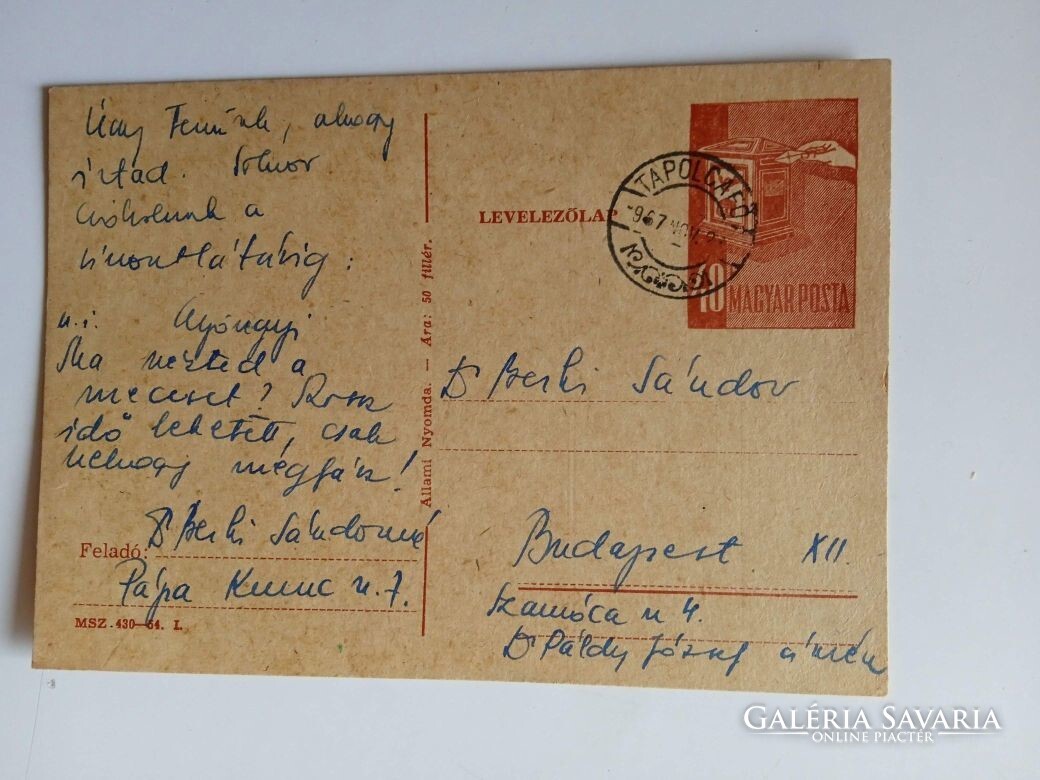 Úgy Teszünk, ahogy
írtad. Sokszor
csókolunk a
viszontlátásig:
u.i. Gyöngyi
Ma nézted a
meccset? Rossz
idő lehetett, csak
nehogy megfázz!
Feladó: Dr Berki Sándorné
Pápa Kunc u. 7.
MSZ. 430—64. I.
Állami Nyomda. — Ára: 50 fillér.
LEVELEZŐLAP
TAPOLCAFŐ
967 NOV
10 MAGYAR POSTA
Dr Berki Sándor
Budapest XII.
Szamóca u 4.
Dr Páldy József címén
GALÉRIA SAVARIA
ONLINE PIACTÉR